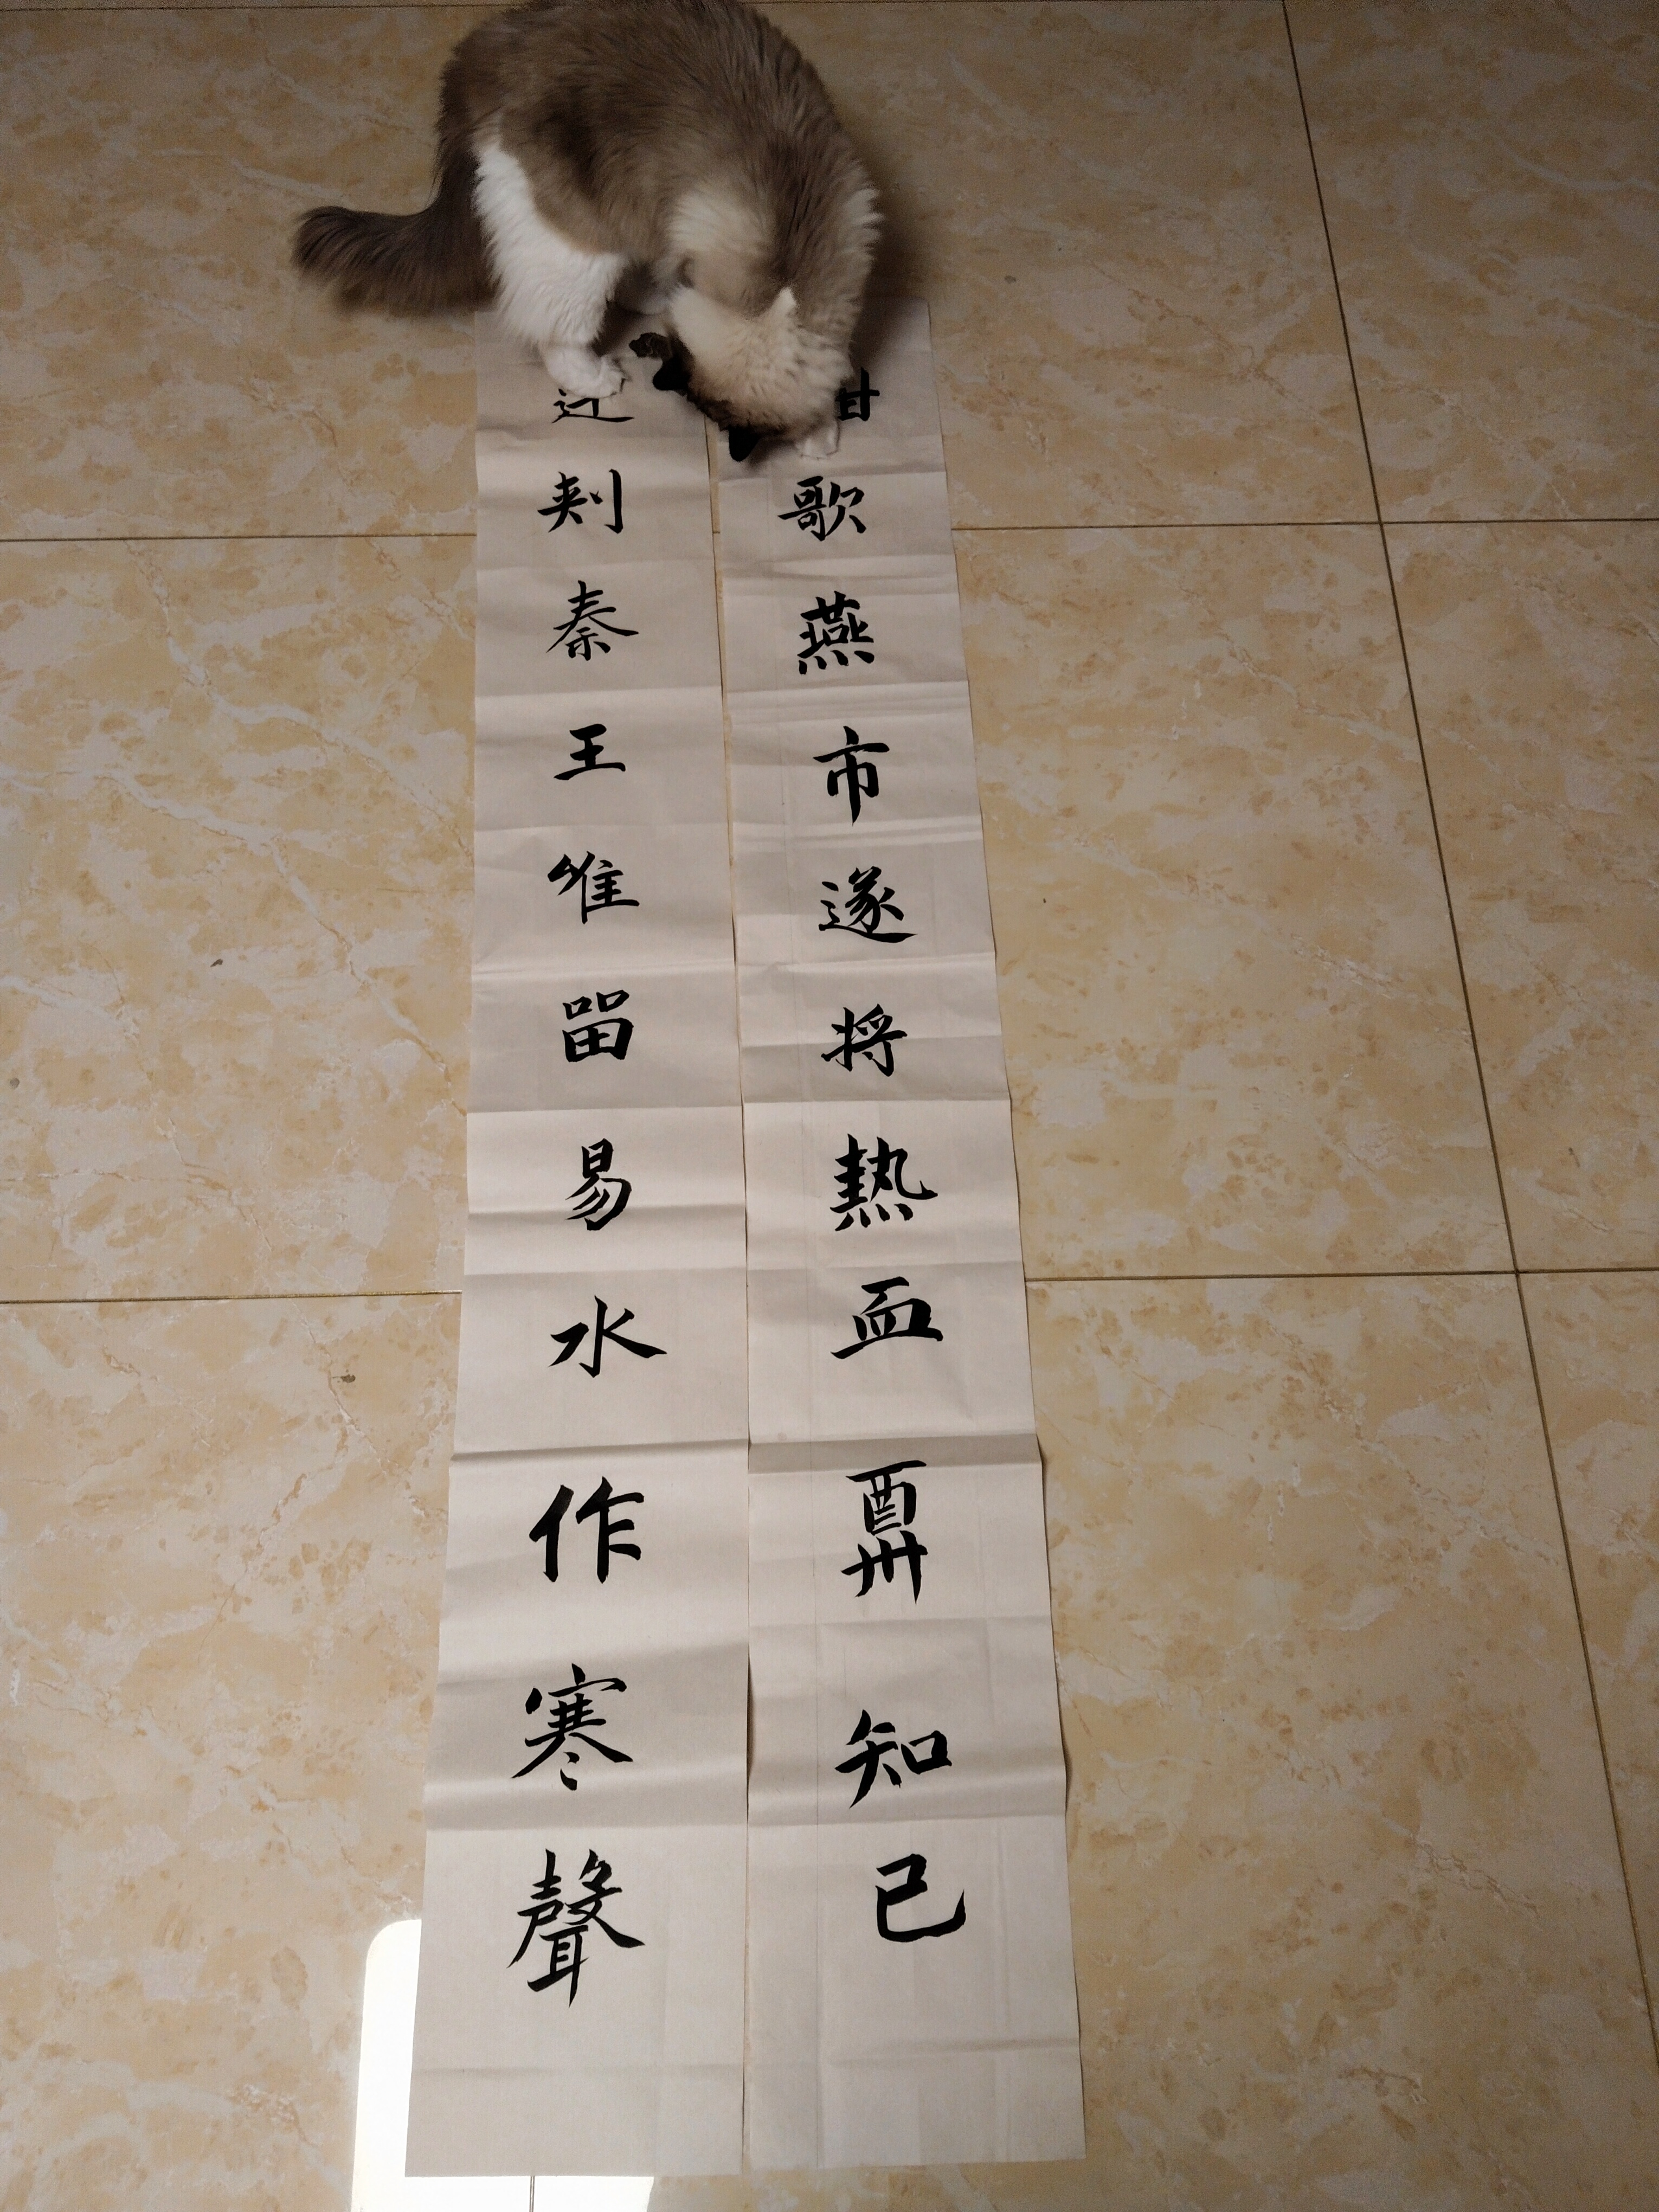 歌燕市遂将熱血酬知己
刺秦王唯留易水作寒聲